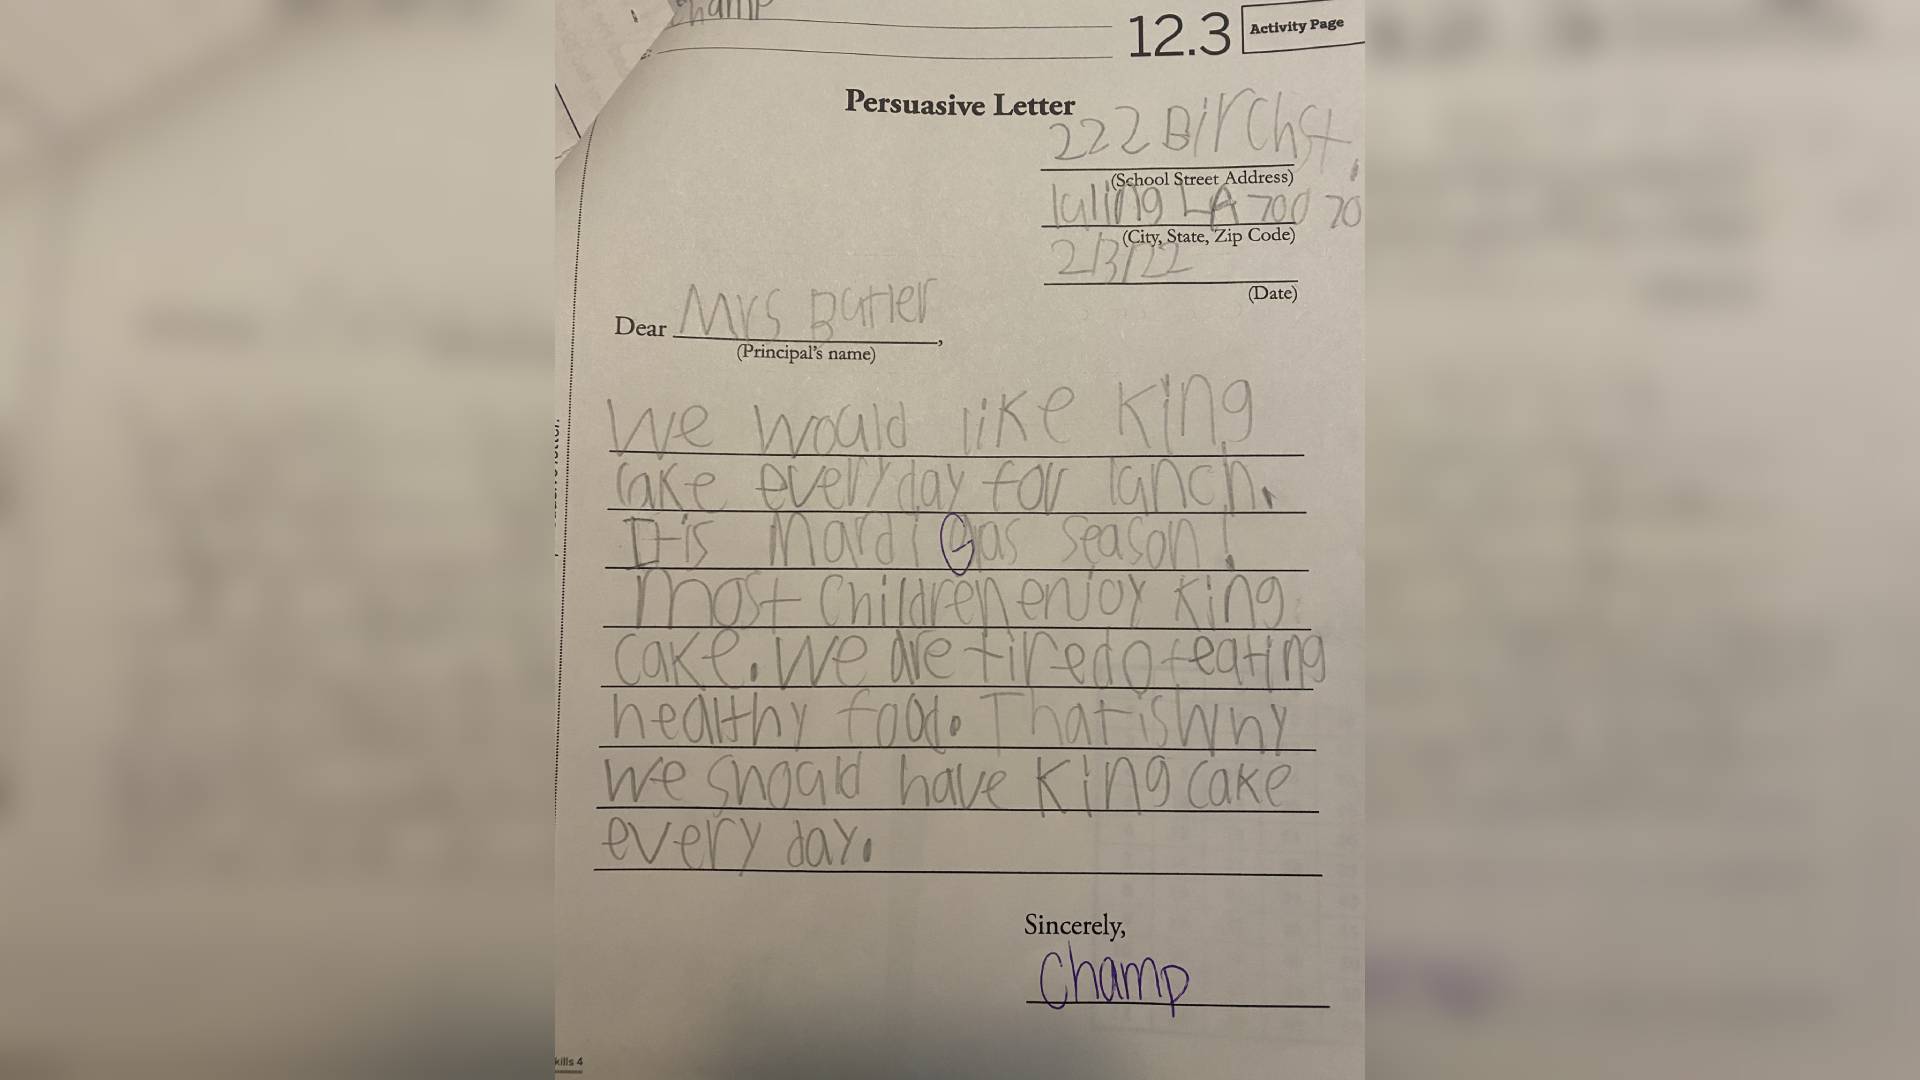 Champ
12.3 Activity Page
Persuasive Letter
222 Birch st.
(School Street Address)
luling LA 70070
(City, State, Zip Code)
2/3/22
(Date)
Dear Mrs Butler,
(Principal's name)
We would like King
cake every day for lunch.
It is Mardi Gas season!
most children enjoy King
cake. We are tired of eating
healthy food. That is why
we should have King cake
every day.
Sincerely,
Champ
kills 4